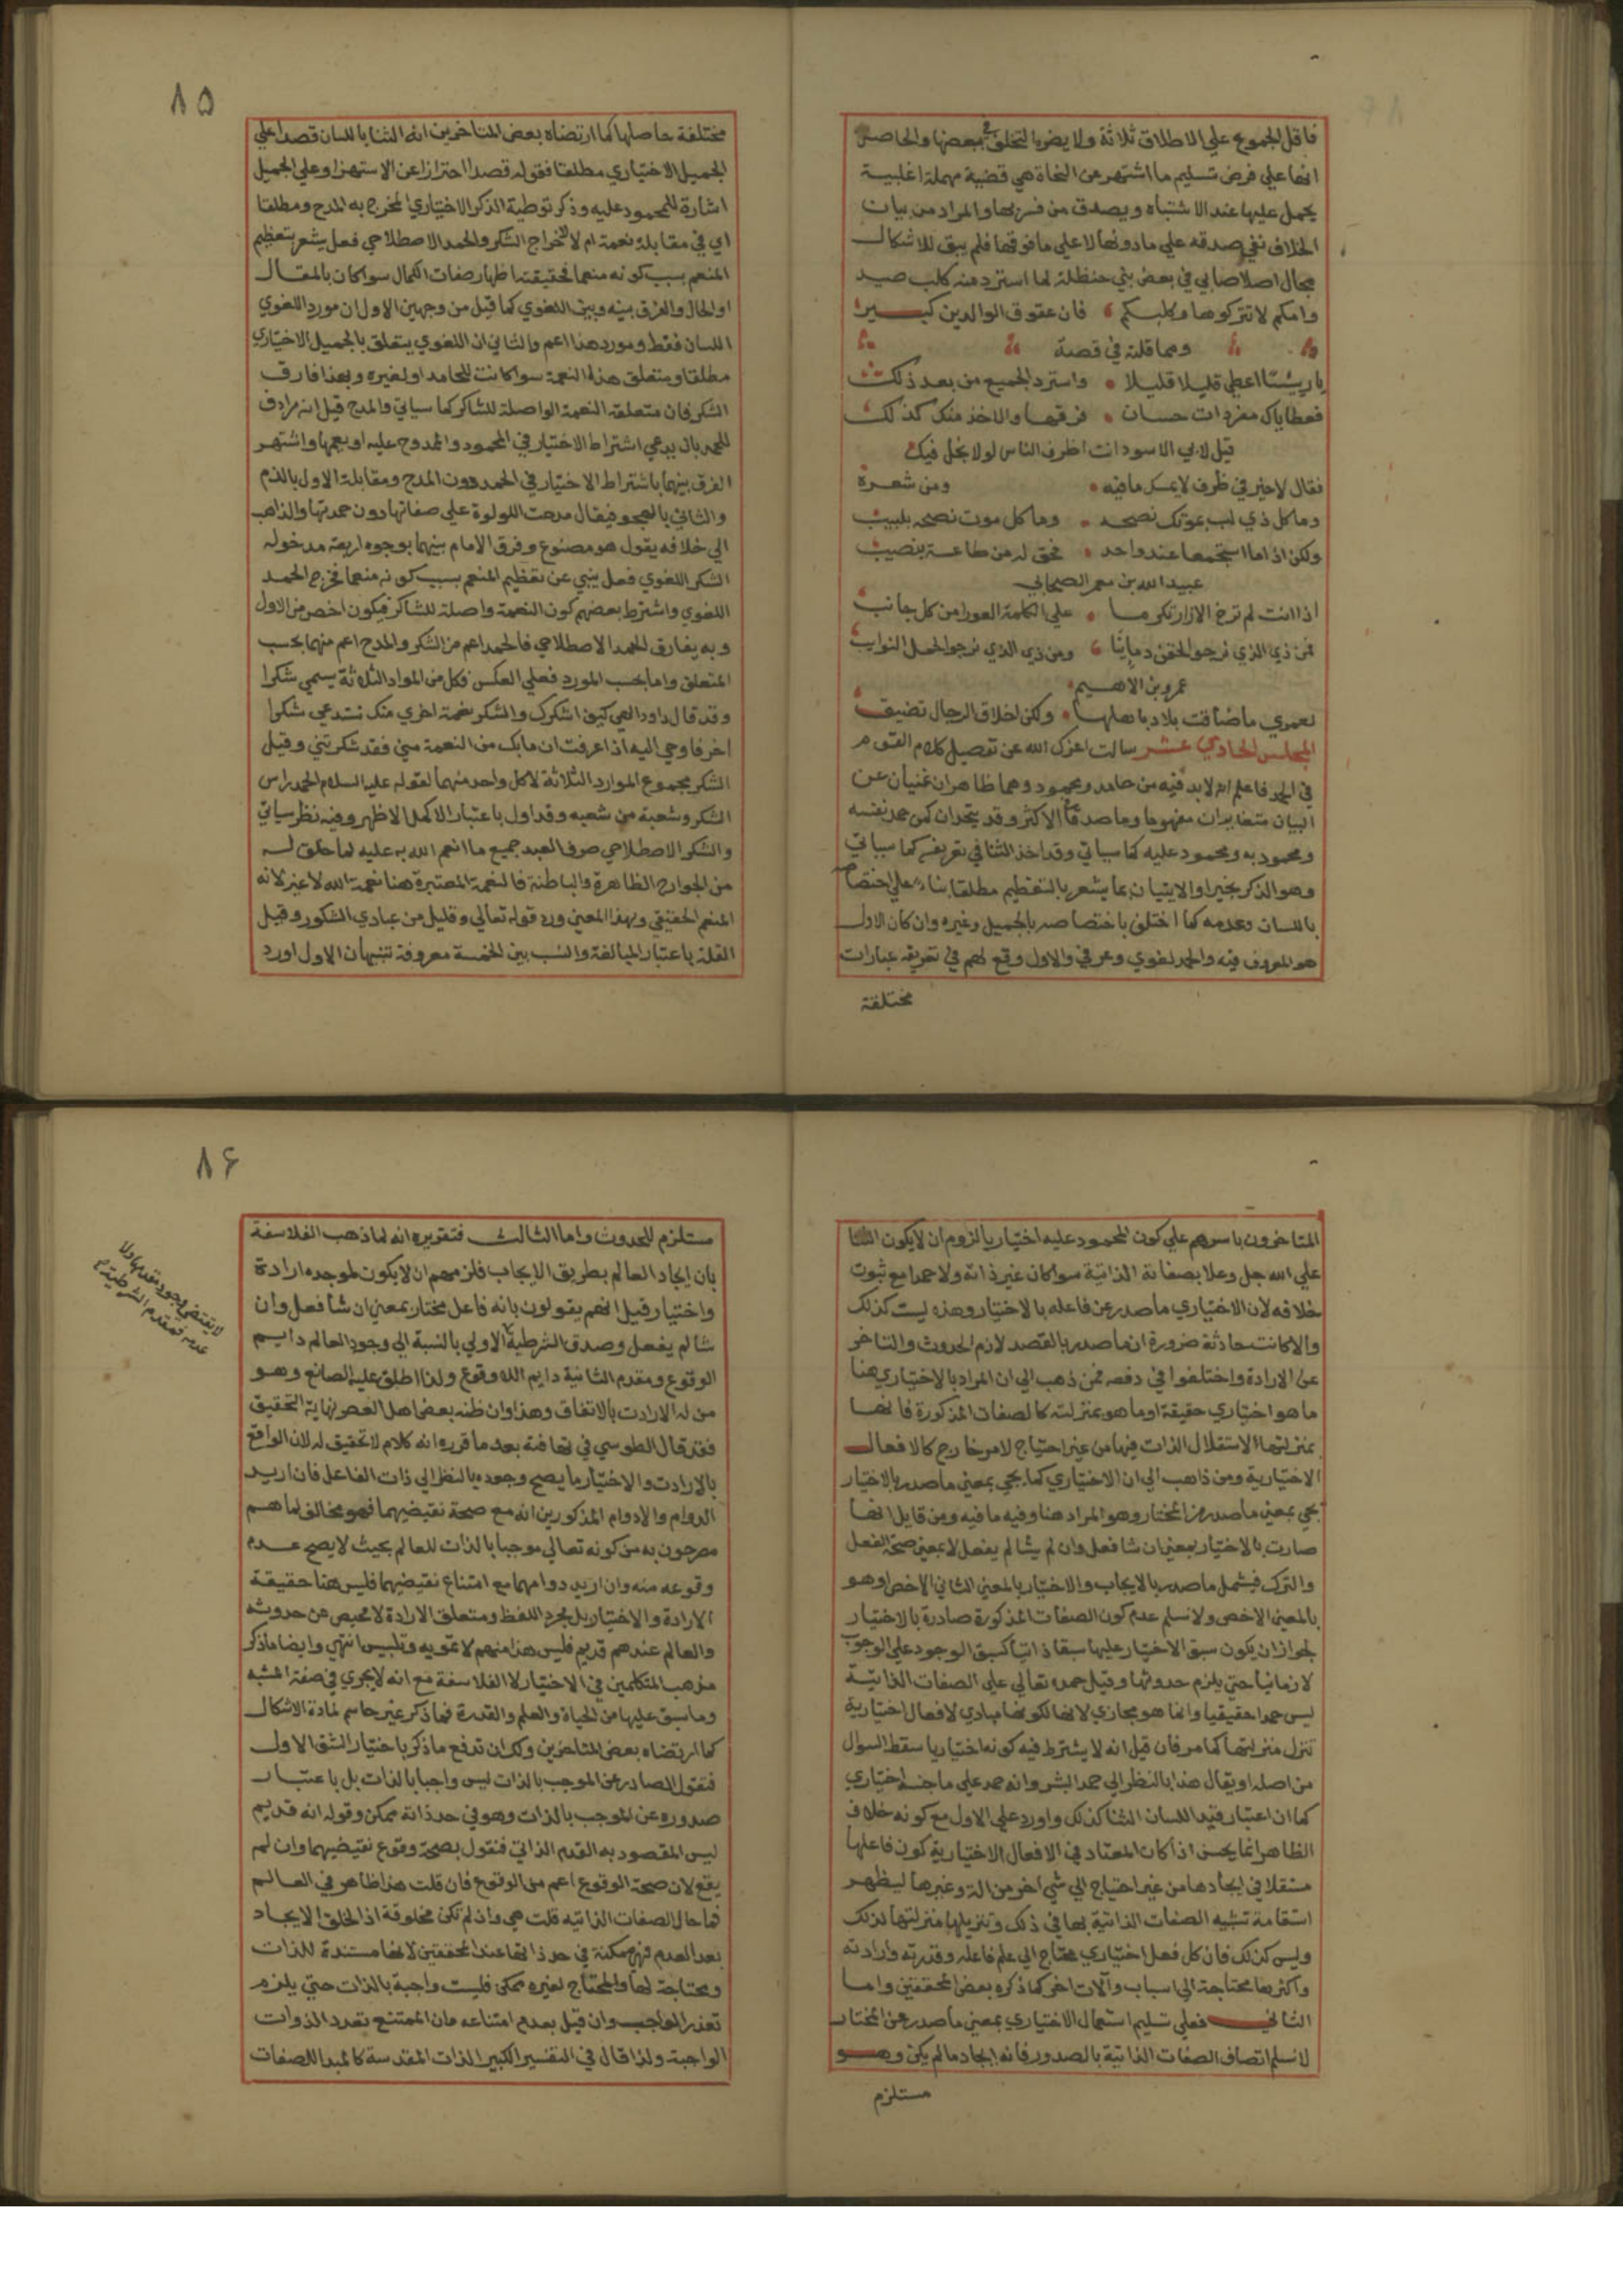 فاقل الجموع علي الاطلاق ثلاثة ولا يضرها التخلف في بعضها والحاصل
انها علي فرض تسليم ما اشتهر من النحاة هي قضية مهملة اغلبية
يحمل عليها عند الاشتباه ويصدق من فسر بها والمراد من بيان
الخلاف نفي صدقه علي ما دونها لا علي ما فوقها فلم يبق للاشكال
مجال اصلا صابي في بعض بني حنظلة لما استرد منه كلب صيد
وامكم لا تتركوها وكلبكم فان عقوق الوالدين كبير
ومما قلته في قصة
يا رشا اعطي قليلا قليلا واسترد الجميع من بعد ذلك
فعطاياك مفردات حسان فرقها والاخذ منك كذلك
قيل لابي الاسود انت اظرف الناس لولا بخل فيك
فقال لا خير في ظرف لا يمسك ما فيه ومن شعره
وما كل ذي لب بموتيك نصحه وما كل موت نصحه بلبيب
ولكن اذا ما استجمعا عند واحد فحق له من طاعة بنصيب
عبيد الله بن معمر الصحابي
اذا انت لم ترخ الازار تكرما علي الكلمة العورا من كل جانب
فمن ذي الذي نرجو لحقن دماينا ومن ذي الذي نرجو لحمل النوايب
عمرو بن الاهيم
لعمري ما ضاقت بلاد باهلها ولكن اخلاق الرجال تضيق
المجلس الحادي عشر سالت اعزك الله عن تفصيل كلام القوم
في الحمد فاعلم انه لا بد فيه من حامد ومحمود وهما ظاهران غنيان عن
البيان متغايران مفهوما وما صدقا في الاكثر وقد يتحدان كمن حمد نفسه
ومحمود به ومحمود عليه كما سياتي وقد اخذ الثنا في تعريفه كما سياتي
وهو الذكر بخير او الاتيان بما يشعر بالتعظيم مطلقا بناء علي اختصاصه
باللسان وعدمه كما اختلف باختصاصه بالجميل وغيره وان كان الاول
هو المعروف فيه والحمد لغوي وعرفي والاول وقع لهم في تعريفه عبارات
مختلفة
٨٥
مختلفة حاصلها كما ارتضاه بعض المتاخرين انه الثنا باللسان قصدا علي
الجميل الاختياري مطلقا فقوله قصدا احترازا عن الاستهزا وعلي الجميل
اشارة للمحمود عليه وذكر توطية الذكر الاختياري المخرج به المدح ومطلقا
اي في مقابلة نعمة ام لا لاخراج الشكر والحمد الاصطلاحي فعل يشعر بتعظيم
المنعم بسبب كونه منعما فحقيقته اظهار صفات الكمال سوا كان بالمقال
او الحال والفرق بينه وبين اللغوي كما قيل من وجهين الاول ان مورد اللغوي
اللسان فقط ومورد هذا اعم والثاني ان اللغوي يتعلق بالجميل الاختياري
مطلقا ومتعلق هذا النعمة سوا كانت للحامد او لغيره وبهذا فارق
الشكر فان متعلقه النعمة الواصلة للشاكر كما سياتي والمدح قيل انه مرادف
للحمد بان يدعي اشتراط الاختيار في المحمود والممدوح عليه او يعمها واشتهر
الفرق بينهما باشتراط الاختيار في الحمد دون المدح ومقابلة الاول بالذم
والثاني بالهجو فيقال مدحت اللولوة علي صفاتها دون حمدتها والذاهب
الي خلافه يقول هو مصنوع وفرق الامام بينهما بوجوه اربعة مدخوله
الشكر اللغوي فعل ينبي عن تعظيم المنعم بسبب كونه منعما فخرج الحمد
اللغوي واشترط بعضهم كون النعمة واصلة للشاكر فيكون اخص من الاول
وبه يفارق الحمد الاصطلاحي فالحمد اعم من الشكر والمدح اعم منهما بحسب
المتعلق واما بحسب المورد فعلي العكس فكل من المواد الثلاثة يسمي شكرا
وقد قال داود الهي كيف اشكرك والشكر نعمة اخري منك تستدعي شكرا
اخر فاوحي اليه اذا عرفت ان مابك من النعمة مني فقد شكرتني وقيل
الشكر مجموع الموارد الثلاثة لا كل واحد منهما لقوله عليه السلام الحمد راس
الشكر وشعبة من شعبه وقد اول باعتبار الاكمل الاظهر وفيه نظر سياتي
والشكر الاصطلاحي صرف العبد جميع ما انعم الله به عليه لما خلق له
من الجوارح الظاهرة والباطنة فالنعمة المعتبرة هنا نعمة الله لا غير لانه
المنعم الحقيقي وبهذا المعني ورد قوله تعالي وقليل من عبادي الشكور وقيل
القلة باعتبار المبالغة والنسب بين الخمسة معروفة تنبيهان الاول اورد
المتاخرون باسرهم علي كون المحمود عليه اختياريا لزوم ان لا يكون الثنا
علي الله جل وعلا بصفاته الذاتية سوا كان غير ذاته ولا حمدا مع ثبوت
خلافه لان الاختياري ما صدر عن فاعله بالاختيار وهذه ليست كذلك
والا كانت حادثة ضرورة ان ما صدر بالقصد لازم الحدوث والتاخر
عن الارادة واختلفوا في دفعه فمن ذهب الي ان المراد بالاختياري هنا
ما هو اختياري حقيقة او ما هو بمنزلته كالصفات المذكورة فانها
بمنزلتها لاستقلال الذات فيها من غير احتياج لامر خارج كالافعال
الاختيارية ومن ذاهب الي ان الاختياري كما يجي بمعني ما صدر بالاختيار
يجي بمعني ما صدر من المختار وهو المراد هنا وفيه ما فيه ومن قايل انها
صارت بالاختيار بمعني ان شا فعل وان لم يشا لم يفعل لا بمعني صحة الفعل
والترك فيشمل ما صدر بالايجاب والاختيار بالمعني الثاني الاخص او هو
بالمعني الاخص ولا نسلم عدم كون الصفات المذكورة صادرة بالاختيار
لجواز ان يكون سبق الاختيار عليها سبقا ذاتيا كسبق الوجود علي الوجوب
لا زمانيا حتي يلزم حدوثها وقيل حمده تعالي علي الصفات الذاتية
ليس حمدا حقيقيا وانما هو مجازي لانها لكونها مبادي لافعال اختيارية
تنزل منزلتها كما مر فان قيل انه لا يشترط فيه كونه اختياريا سقط السوال
من اصله او يقال هذا بالنظر الي حمد البشر وانه حمد علي ما جنسه اختياري
كما ان اعتبار قيد اللسان الثنا كذلك واورد علي الاول مع كونه خلاف
الظاهر انما يحسن اذا كان المعتاد في الافعال الاختيارية كون فاعلها
مستقلا في ايجادها من غير احتياج الي شي اخر من الة وغيرها ليظهر
استقامة تشبيه الصفات الذاتية بها في ذلك وتنزيلها منزلتها لذلك
وليس كذلك فان كل فعل اختياري محتاج الي علم فاعله وقدرته وارادته
واكثرها محتاجة الي اسباب والات اخر كما ذكره بعض المحققين واما
الثاني فعلي تسليم استعمال الاختياري بمعني ما صدر عن المختار
لا نسلم اتصاف الصفات الذاتية بالصدور فانه ايجاد ما لم يكن وهو
مستلزم
٨٦
مستلزم للحدوث واما الثالث فتقريره انه لما ذهب الفلاسفة
بان ايجاد العالم بطريق الايجاب فلزمهم ان لا يكون لموجده ارادة
واختيار قيل انهم يقولون بانه فاعل مختار بمعني ان شا فعل وان
شا لم يفعل وصدق الشرطية الاولي بالنسبة الي وجود العالم دايم
الوقوع ومقدم الثانية دايم اللا وقوع ولذا اطلق عليه الصانع وهو
من له الارادت بالاتفاق وهذا وان ظنه بعض اهل العصر نهاية التحقيق
فقد قال الطوسي في تهافته بعد ما قرره انه كلام لا تحقيق له لان الواقع
بالارادت والاختيار ما يصح وجوده بالنظر الي ذات الفاعل فان اريد
الدوام واللادوام المذكورين انه مع صحة نقيضهما فهو مخالف لما هم
مصرحون به من كونه تعالي موجبا بالذات للعالم بحيث لا يصح عدم
وقوعه منه وان اريد دوامهما مع امتناع نقيضهما فليس هنا حقيقة
الارادة والاختيار بل مجرد اللفظ ومتعلق الارادة لا محيص من حدوثه
والعالم عندهم قديم فليس هذا منهم الا تمويه وتلبيس انتهي وايضا ما ذكر
مذهب المتكلمين في الاختيار لا الفلاسفة مع انه لا يجري في صفة المشيه
وما سبق عليها من الحياة والعلم والقدرة فما ذكر غير حاسم لمادة الاشكال
كما ارتضاه بعض المتاخرين ولك ان تدفع ما ذكر باختيار الشق الاول
فنقول الصادر عن الموجب بالذات ليس واجبا بالذات بل باعتبار
صدوره عن الموجب بالذات وهو في حد ذاته ممكن وقوله انه قديم
ليس المقصود به القدم الذاتي فنقول بصحة وقوع نقيضهما وان لم
يقع لان صحة الوقوع اعم من الوقوع فان قلت هذا ظاهر في العالم
فما حال الصفات الذاتيه قلت هي وان لم تكن مخلوقة اذ الخلق الايجاد
بعد العدم فهي ممكنة في حد ذاتها عند المحققين لانها مستندة للذات
ومحتاجة لها والمحتاج لغيره ممكن فليست واجبة بالذات حتي يلزم
تعدد الواجب وان قيل بعدم امتناعه فان الممتنع تعدد الذوات
الواجبة ولذا قال في التفسير الكبير الذات المقدسة كالمبدا للصفات
لا يقتضي وجود مقدمها ولا
عدمه فمقدم الشرطية